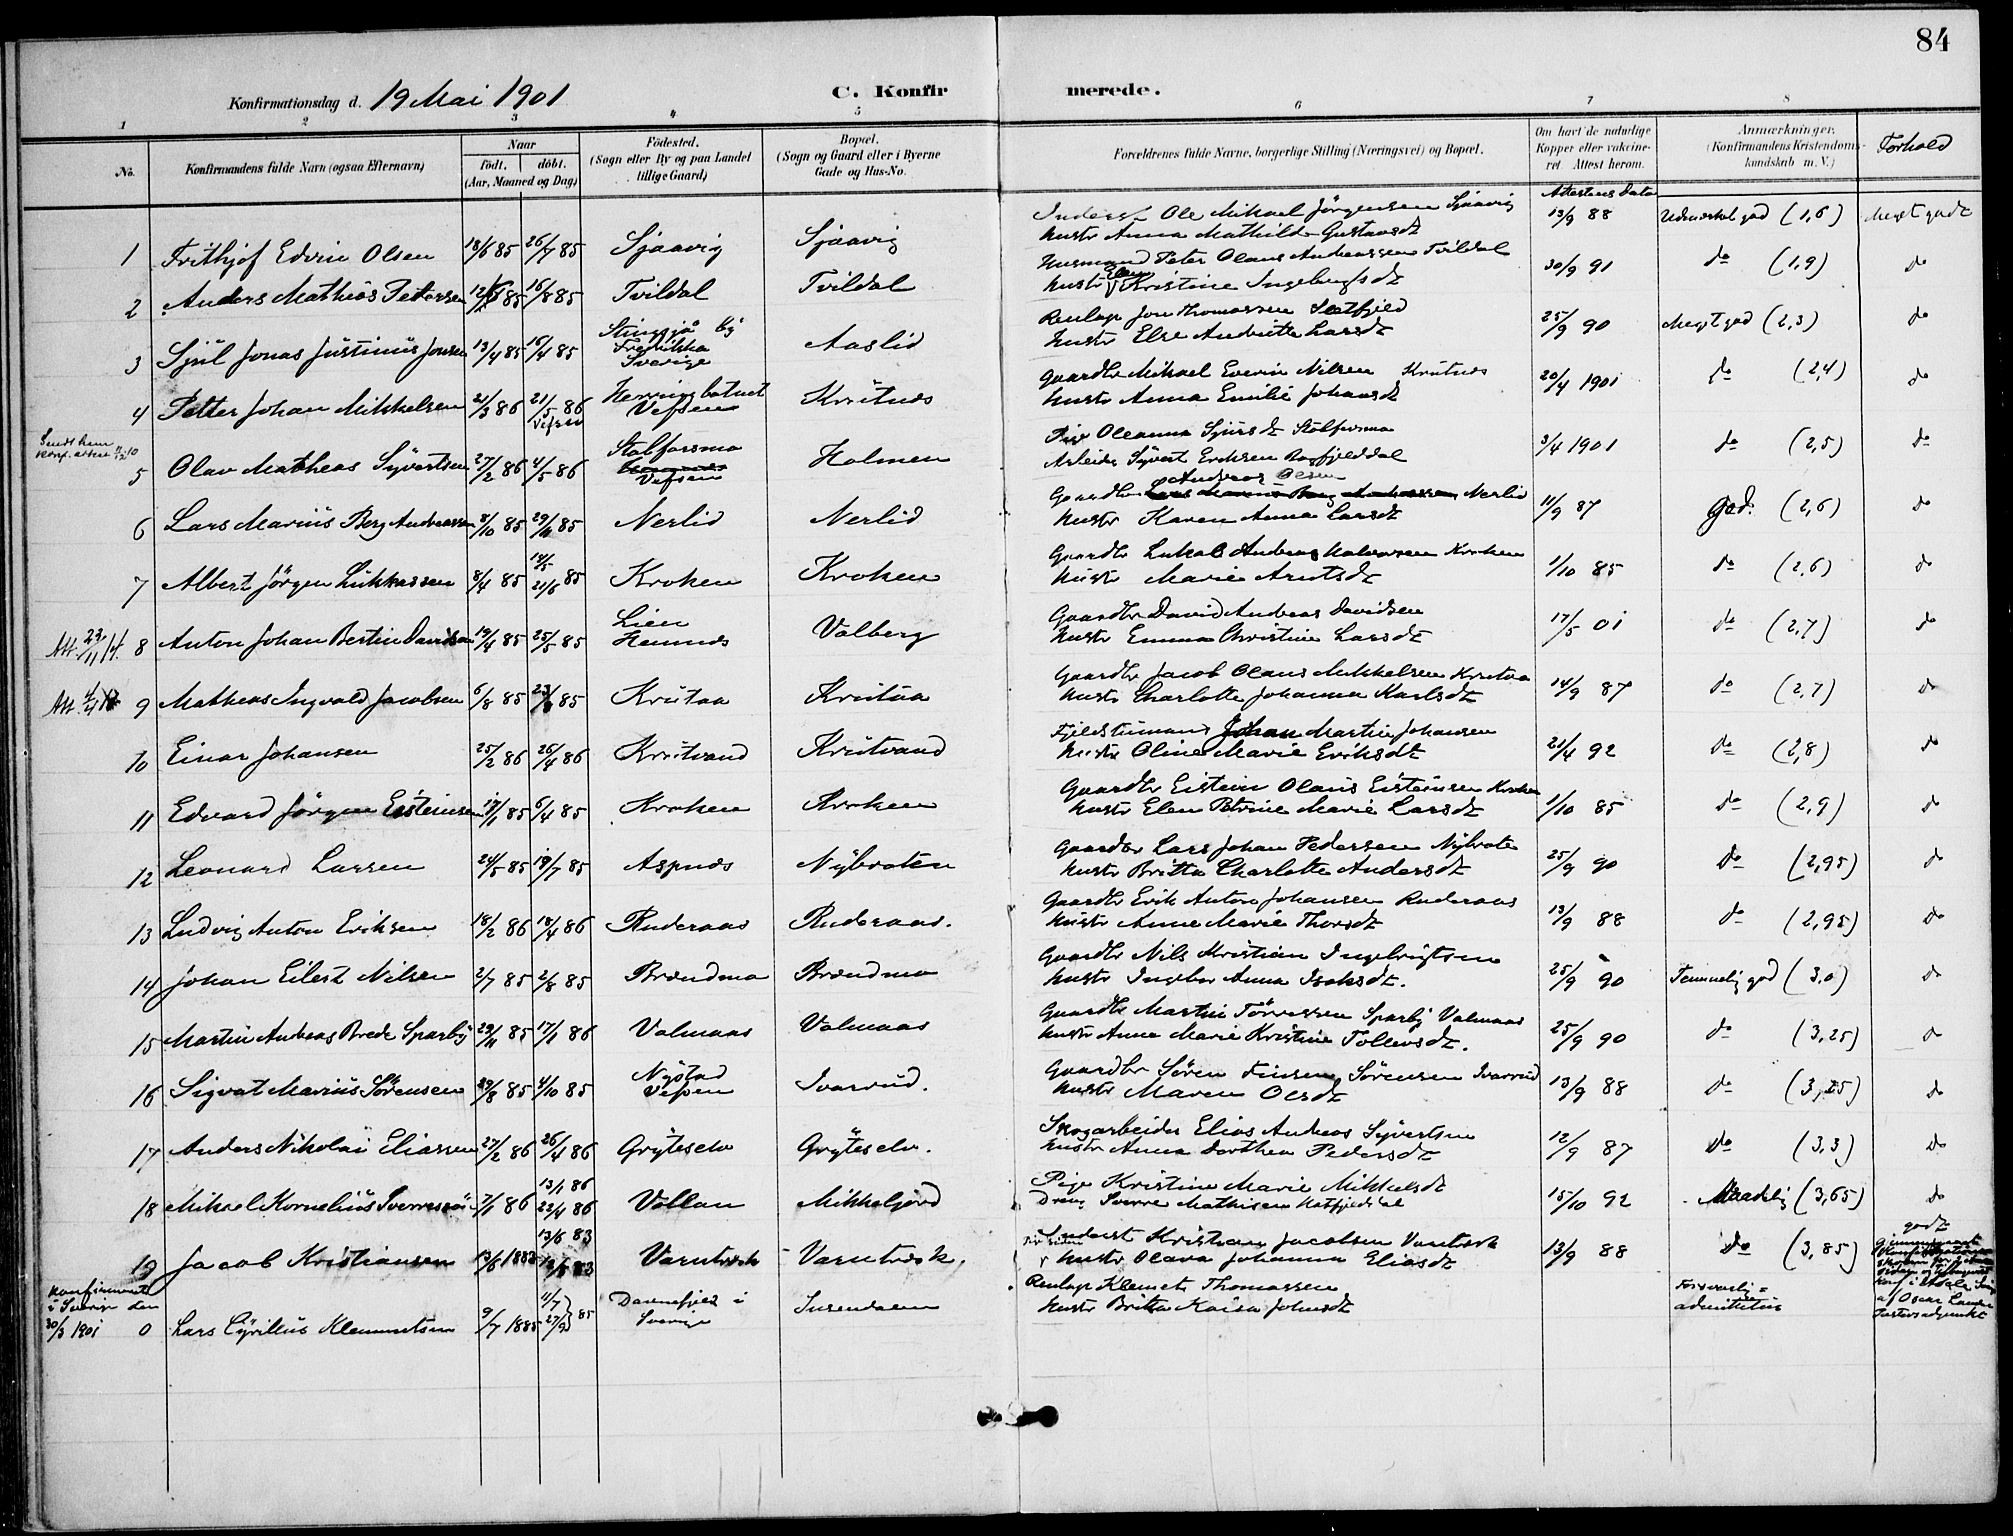 84
Konfirmationsdag d. 19 Mai 1901
C. Konfirmerede.
1 2 3 4 5 6 7 8
No.
Konfirmandens fulde Navn (ogsaa Efternavn)
Naar
födt. döbt.
(Aar, Maaned og Dag)
Födested.
(Sogn eller By og paa Landet
tillige Gaard)
Bopæl.
(Sogn og Gaard eller i Byerne
Gade og Hus-No.
Forældrenes fulde Navne, borgerlige Stilling (Næringsvei) og Bopæl.
Om havt de naturlige
Kopper eller vakcine-
ret. Attest herom.
Anmærkninger.
(Konfirmandens Kristendoms-
kundskab m. V.)
Forhold
Attestens Dato
Inderst Ole Mikael Jörgensen Sjaavig
1 Frithjof Edvin Olsen 18/6 85 26/7 85 Sjaavig Sjaavig Hustr Anna Mathilde Gustavsdt 13/9 88 Udmærket god (1,6) Meget godt
Husmand Peter Olaus Andreassen Tvildal
2 Anders Mathias Pettersen 85 16/8 85 Tvildal Tvildal Hustr Elen Kristine Ingebrigtsdt 30/9 91 do (1,9) do
Renlap Jon Thomassen Slotfjeld
3 Sjul Jonas Justinus Jonsen 13/4 85 16/4 85 Fredrikka Sverige Aaslid Hustr Else Andritte Larsdt 25/9 90 Meget god (2,3) do
Gaardbr Mikael Everin Nilsen Krutnes
4 Petter Johan Mikkelsen 21/3 86 21/5 86 Vefsen Herringbotnet Vefsen Krutnes Hustr Anna Emilie Johansdt 20/4 1901 do (2,4) do
Pige Oleanna Sjursdt Stolfosmo
5 Olav Matheas Syvertsen 27/2 86 4/5 86 Stolforsmo Vefsen Holmen Arbeider Syvert Eriksen 3/4 1901 do (2,5) do
Gaardbr Andreas Olsen Nerlid
6 Lars Marius Berg Andreassen 8/10 85 29/11 85 Nerlid Nerlid Hustr Karen Anna Larsdt 11/9 87 god. (2,6) do
Gaardbr Lukas Andreas Halvorsen Kroken
14/5
7 Albert Jörgen Lukkassen 8/4 85 21/6 85 Kroken Kroken Hustr Marie Arntsdt 1/10 85 do (2,6) do
Gaardbr David Andreas Davidsen
Att. 23/11 14. 8 Anton Johan Bertin Davidsen 19/4 85 25/5 85 Lien Hemnes Valberg Hustr Emma Christine Larsdt 17/5 01 do (2,7) do
Gaardbr Jacob Olaus Mikkelsen Krutaa
Att. 9 Matheas Ingvald Jacobsen 6/8 85 85 Krutaa Krutaa Hustr Charlotte Johanna Karlsdt 14/9 87 do (2,7) do
Fjeldstumand Johan Martin Johansen
10 Einar Johansen 25/2 86 26/4 86 Krutvand Krutvand Hustr Oline Marie Eriksdt 21/4 92 do (2,8) do
Gaardbr Eistein Olaus Eisteinsen Kroken
11 Edvard Jörgen Eisteinsen 19/1 85 6/4 85 Kroken Kroken Hustr Elen Petrine Marie Larsdt 1/10 85 do (2,9) do
Gaardbr Lars Johan Pedersen Nybrote
12 Leonard Larsen 24/5 85 19/7 85 Aspnes Nybroten Hustr Britta Charlotte Andersdt 25/9 90 do (2,95) do
Gaardbr Erik Anton Johansen Ruderaas
13 Ludvig Anton Eriksen 18/2 86 18/4 86 Ruderaas Ruderaas. Hustr Anne Marie Thorsdt 13/9 88 do (2,95) do
Gaardbr Nils Kristian Ingebrigtsen
14 Johan Eilert Nilsen 2/7 85 2/8 85 Brændmo Brændmo Hustr Ingebor Anna Isaksdt. 25/9 90 Temmelig god (3,0) do
Gaardbr Martin Törresen Sparby Valmaas
15 Martin Andreas Brede Sparby 29/11 85 17/1 86 Valmaas Valmaas Hustr Anne Marie Kristine Tollevsdt. 25/9 90 do (3,25) do
Gaardbr Sören Finsen Sörensen Ivarrud
16 Sigvat Marius Sörensen 29/8 85 4/10 85 Nystad Vefsen Ivarrud. Hustr Maren Olsdt 13/9 88 do (3,25) do
Skogarbeider Elias Andreas Syvertsen
17 Anders Nikolai Eliassen 27/2 86 26/4 86 Gryteselv Gryteselv. Hustr Anna Dorthea Pedersdt 12/9 87 do (3,3) do
13/1 86 Pige Kristine Marie Mikkelsdt
18 Mikael Kornelius Sverressön 7/1 86 22/4 86 Vollan Mikkeljord Dreng Sverre Mathisen Hatfjeldal 15/10 92 Maadelig (3,65) do
13/6 83 Inderst Kristian Jacobsen Varntræsk
19 Jacob Kristiansen 13/6 1883 83 Varntræsk Varntræsk. Hustr Olava Johanna Eliasdt 13/9 88 do (3,85) godt
Konfirmeret
i Sverige den
30/3 1901
Renlap Klemet Thomassen
0 Lars Cyrillus Klemmetsen 9/7 1885 11/7 27/9 } 85 Dannefjeld i Sverige Susendalen Hustr Britta Kaisa Johnsdt Forsvarlig admittitur
af Oscar
Pastorsadjunkt